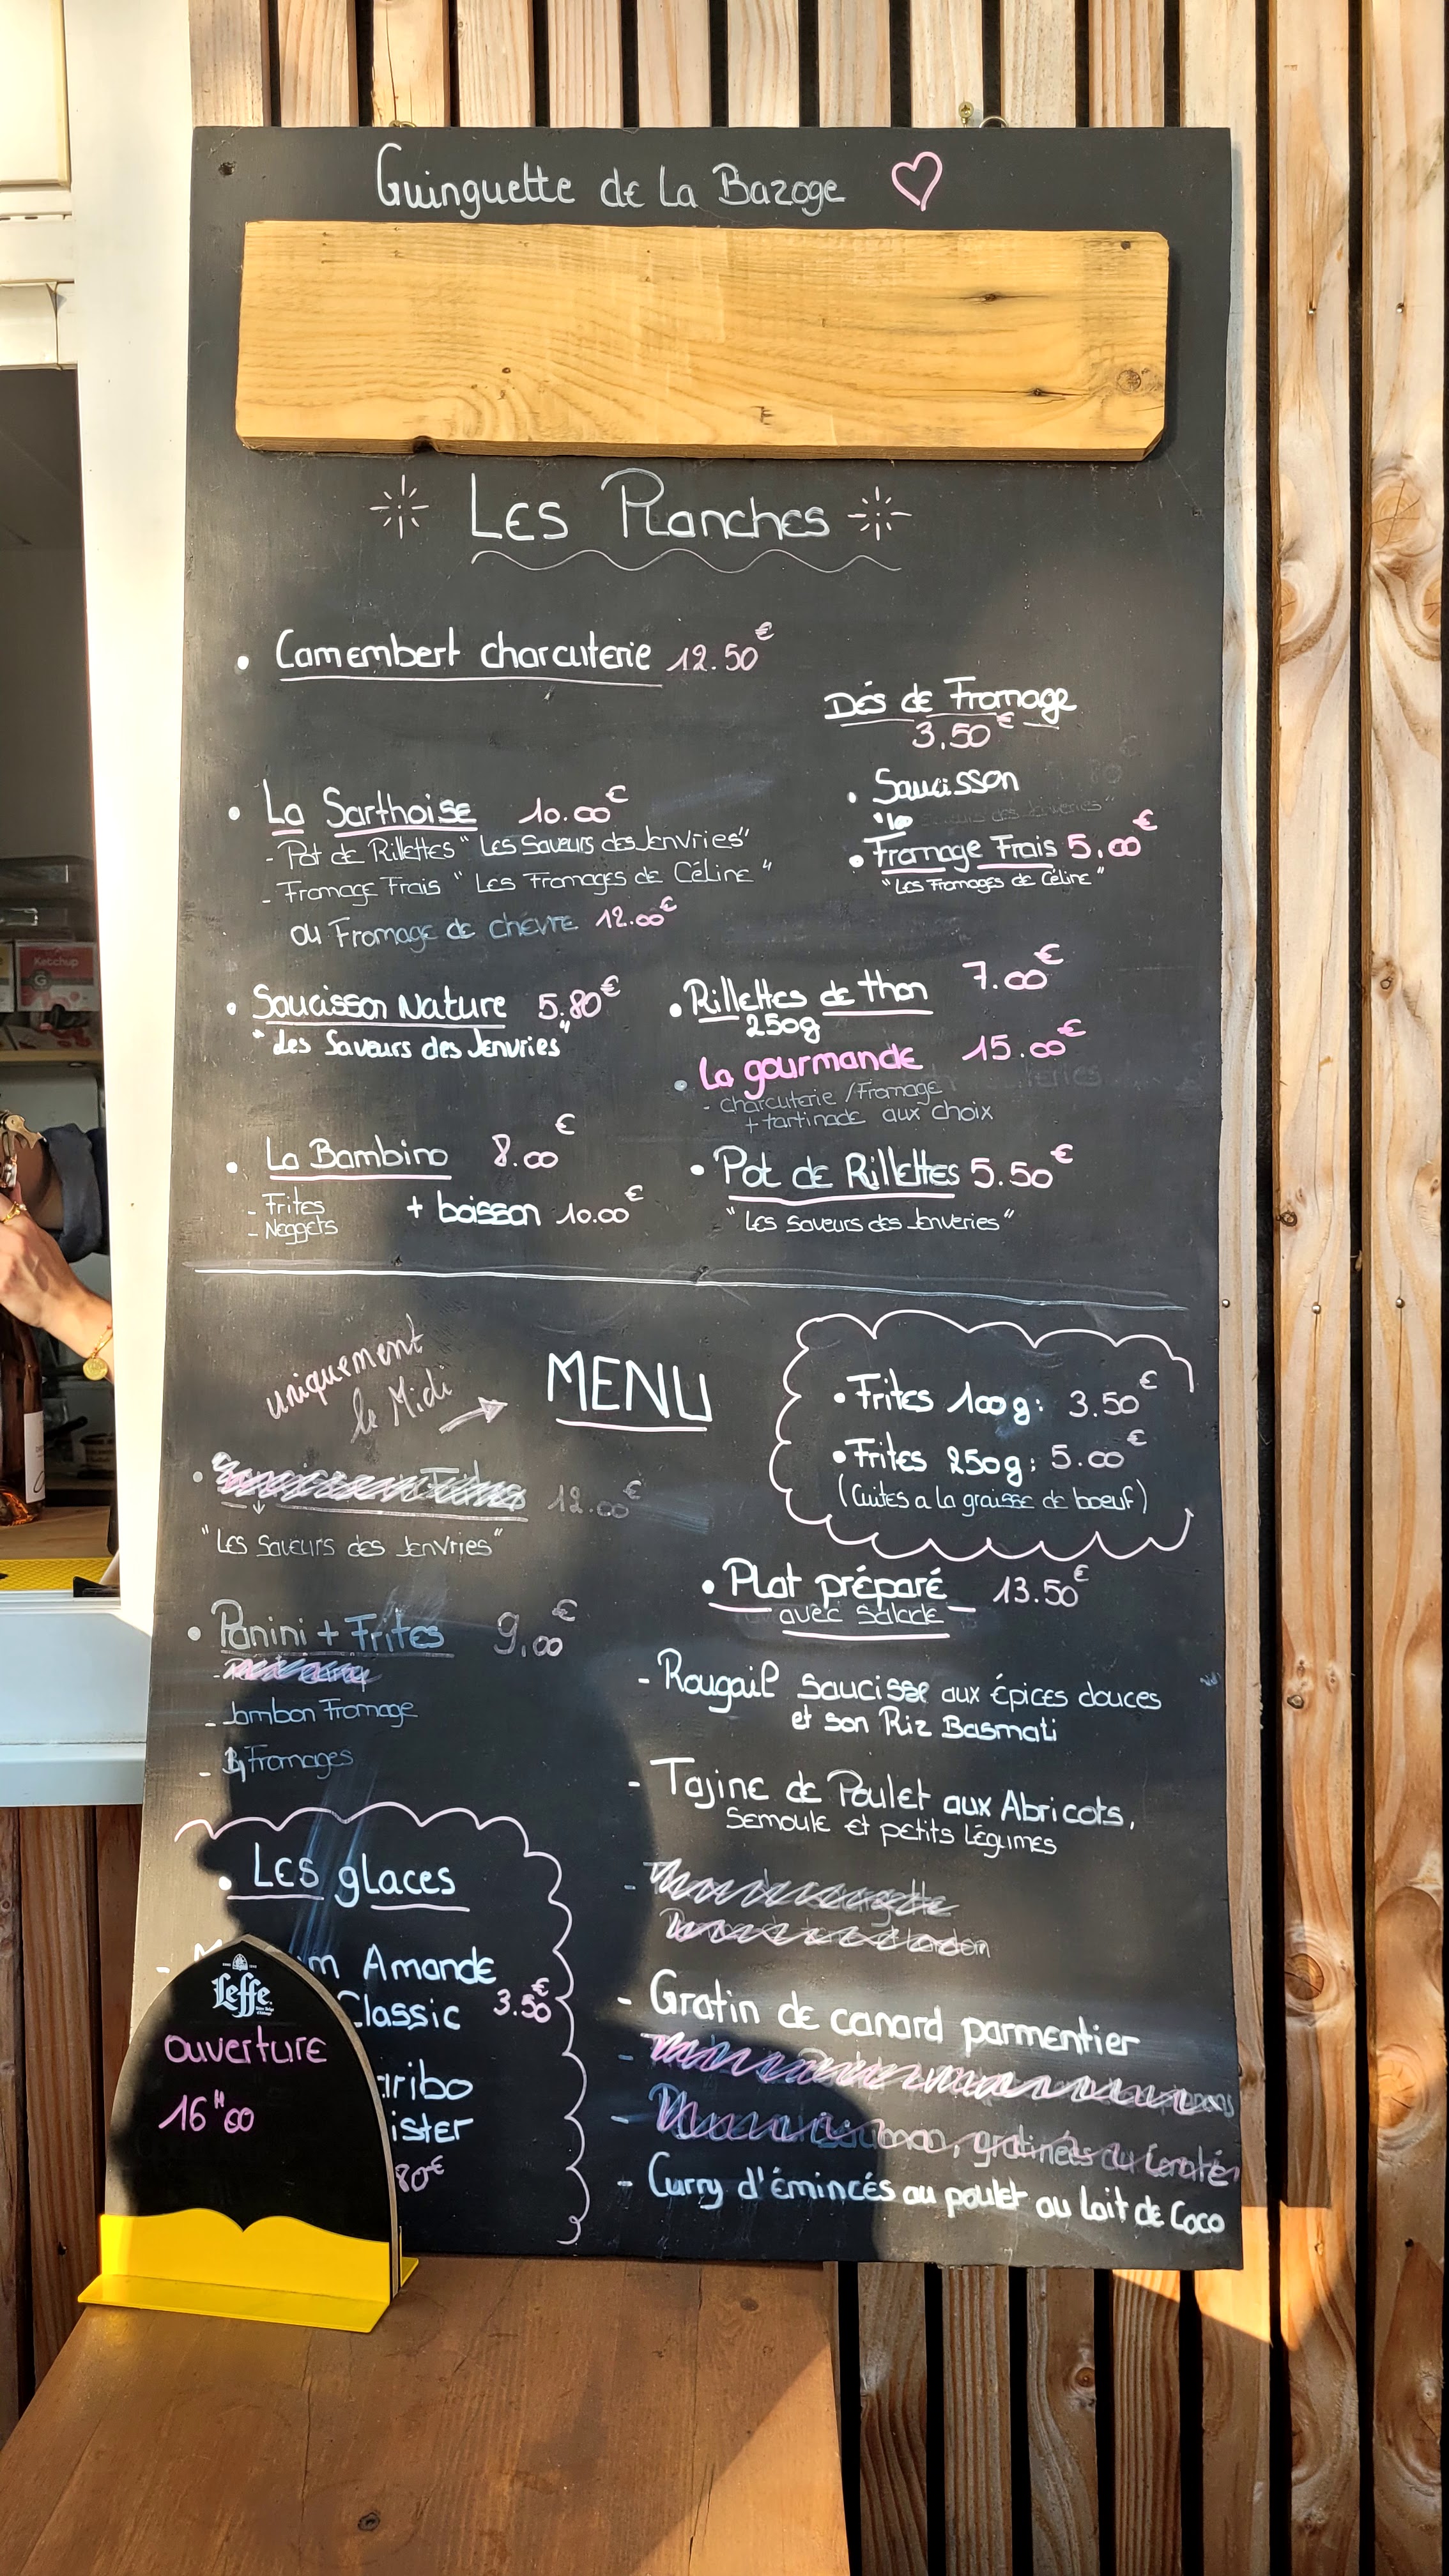 Guinguette de La Bazoge
Les Planches
• Camembert charcuterie 12.50€
Dés de Fromage
3,50€
• La Sarthoise 10.00€
- Pot de Rillettes " Les Saveurs des Jenvries"
- Fromage Frais " Les Fromages de Céline "
ou Fromage de chèvre 12.00€
• Saucisson
• Fromage Frais 5,00€
"Les Fromages de Céline"
• Saucisson Nature 5,80€
" Les Saveurs des Jenvries"
• Rillettes de thon 7.00€
250g
• La gourmande 15.00€
- charcuterie / Fromage
+ tartinade aux choix
• La Bambino 8.00€
- Frites
- Neggets
+ boisson 10.00€
• Pot de Rillettes 5.50€
" Les saveurs des Jenveries"
uniquement
le Midi
MENU
• Frites 100g: 3.50€
• Frites 250g: 5.00€
(Cuites a la graisse de boeuf)
• 12.00€
"Les Saveurs des Jenvries"
• Panini + Frites 9,00€
- Jambon Fromage
- Fromages
• Plat préparé 13.50€
avec Salade
- Rougail saucisse aux épices douces
et son Riz Basmati
- Tajine de Poulet aux Abricots,
Semoule et petits Légumes
- Gratin de canard parmentier
gratinées au Comté
- Curry d'émincés au poulet au lait de Coco
• Les glaces
Amande
Classic 3.50€
80€
Leffe
ouverture
16H00
Ketchup